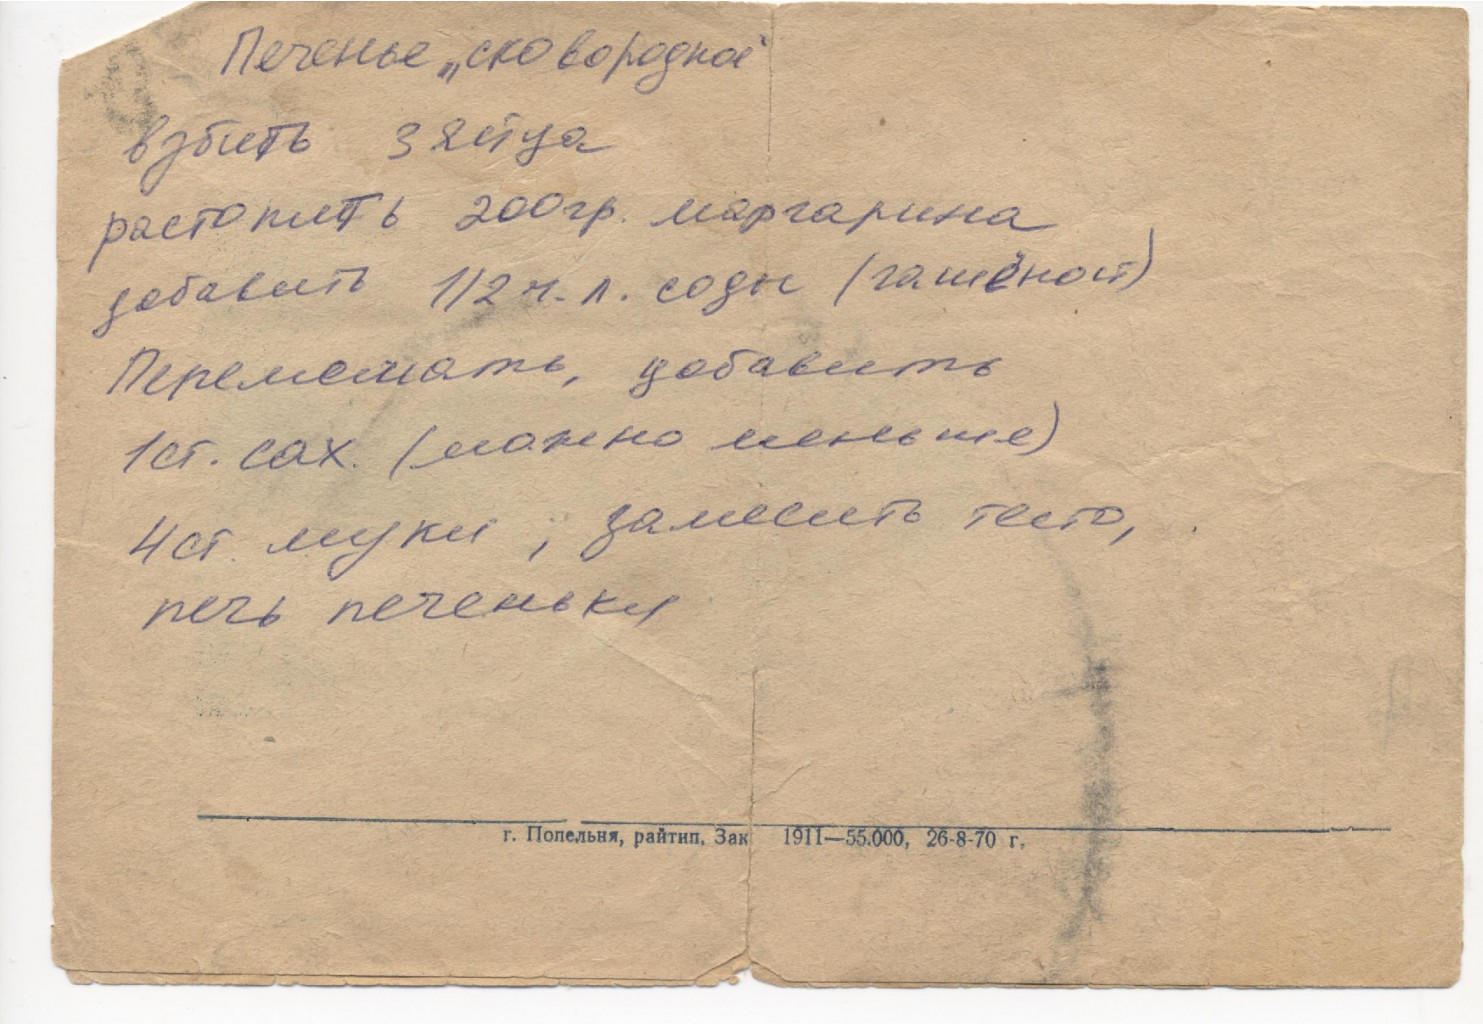 Печенье „сковородное"
взбить 3 яйца
растопить 200гр. маргарина
добавить 1/2 ч. л. соды (гашёной)
Перемешать, добавить
1 ст. сах. (можно меньше)
4 ст. муки, замесить тесто,
печь печеньки
г. Попельня, райтип, Зак 1911—55.000, 26-8-70 г.